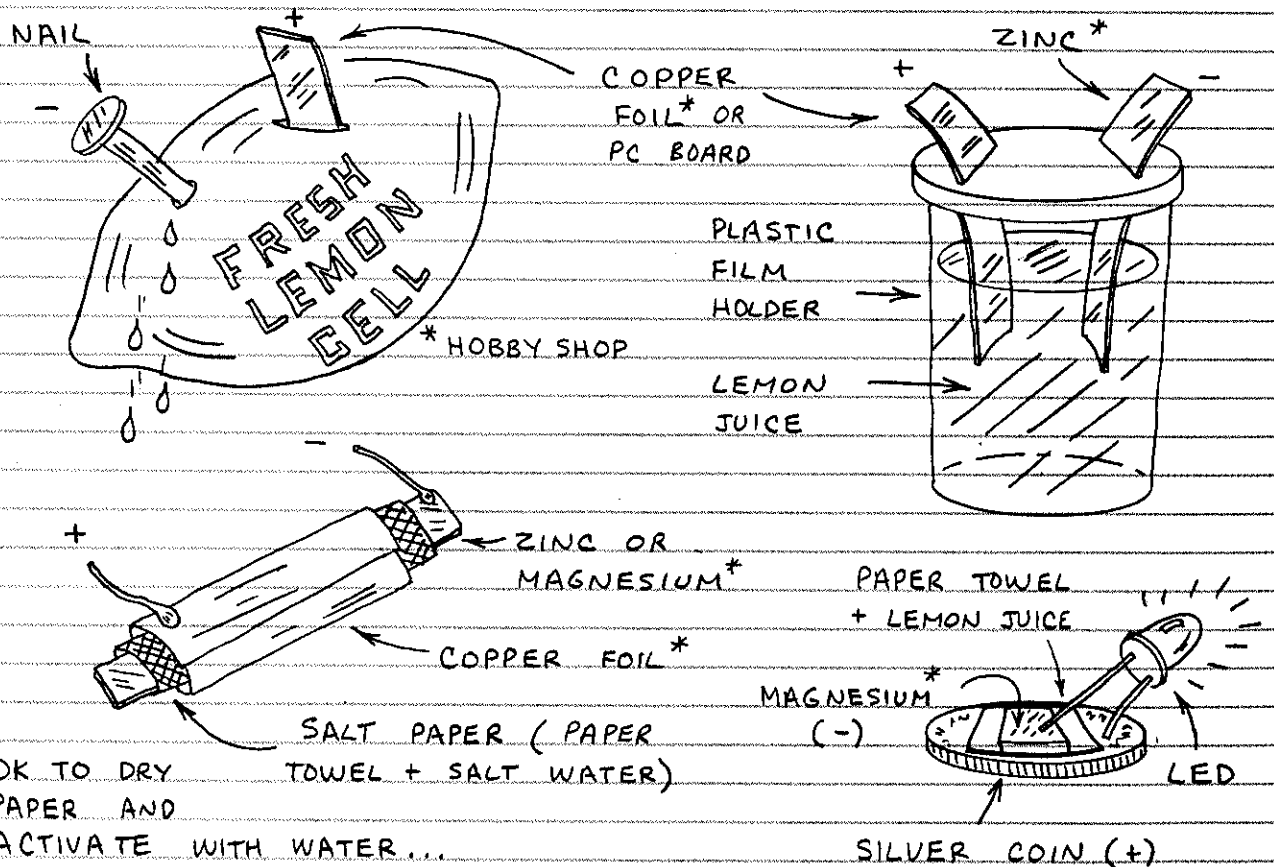 NAIL
+
-
FRESH
LEMON
CELL
* HOBBY SHOP
COPPER
FOIL* OR
PC BOARD
ZINC*
+
-
PLASTIC
FILM
HOLDER
LEMON
JUICE
-
+
ZINC OR
MAGNESIUM*
COPPER FOIL*
SALT PAPER (PAPER
TOWEL + SALT WATER)
OK TO DRY
PAPER AND
ACTIVATE WITH WATER...
PAPER TOWEL
+ LEMON JUICE
MAGNESIUM*
(-)
LED
SILVER COIN (+)